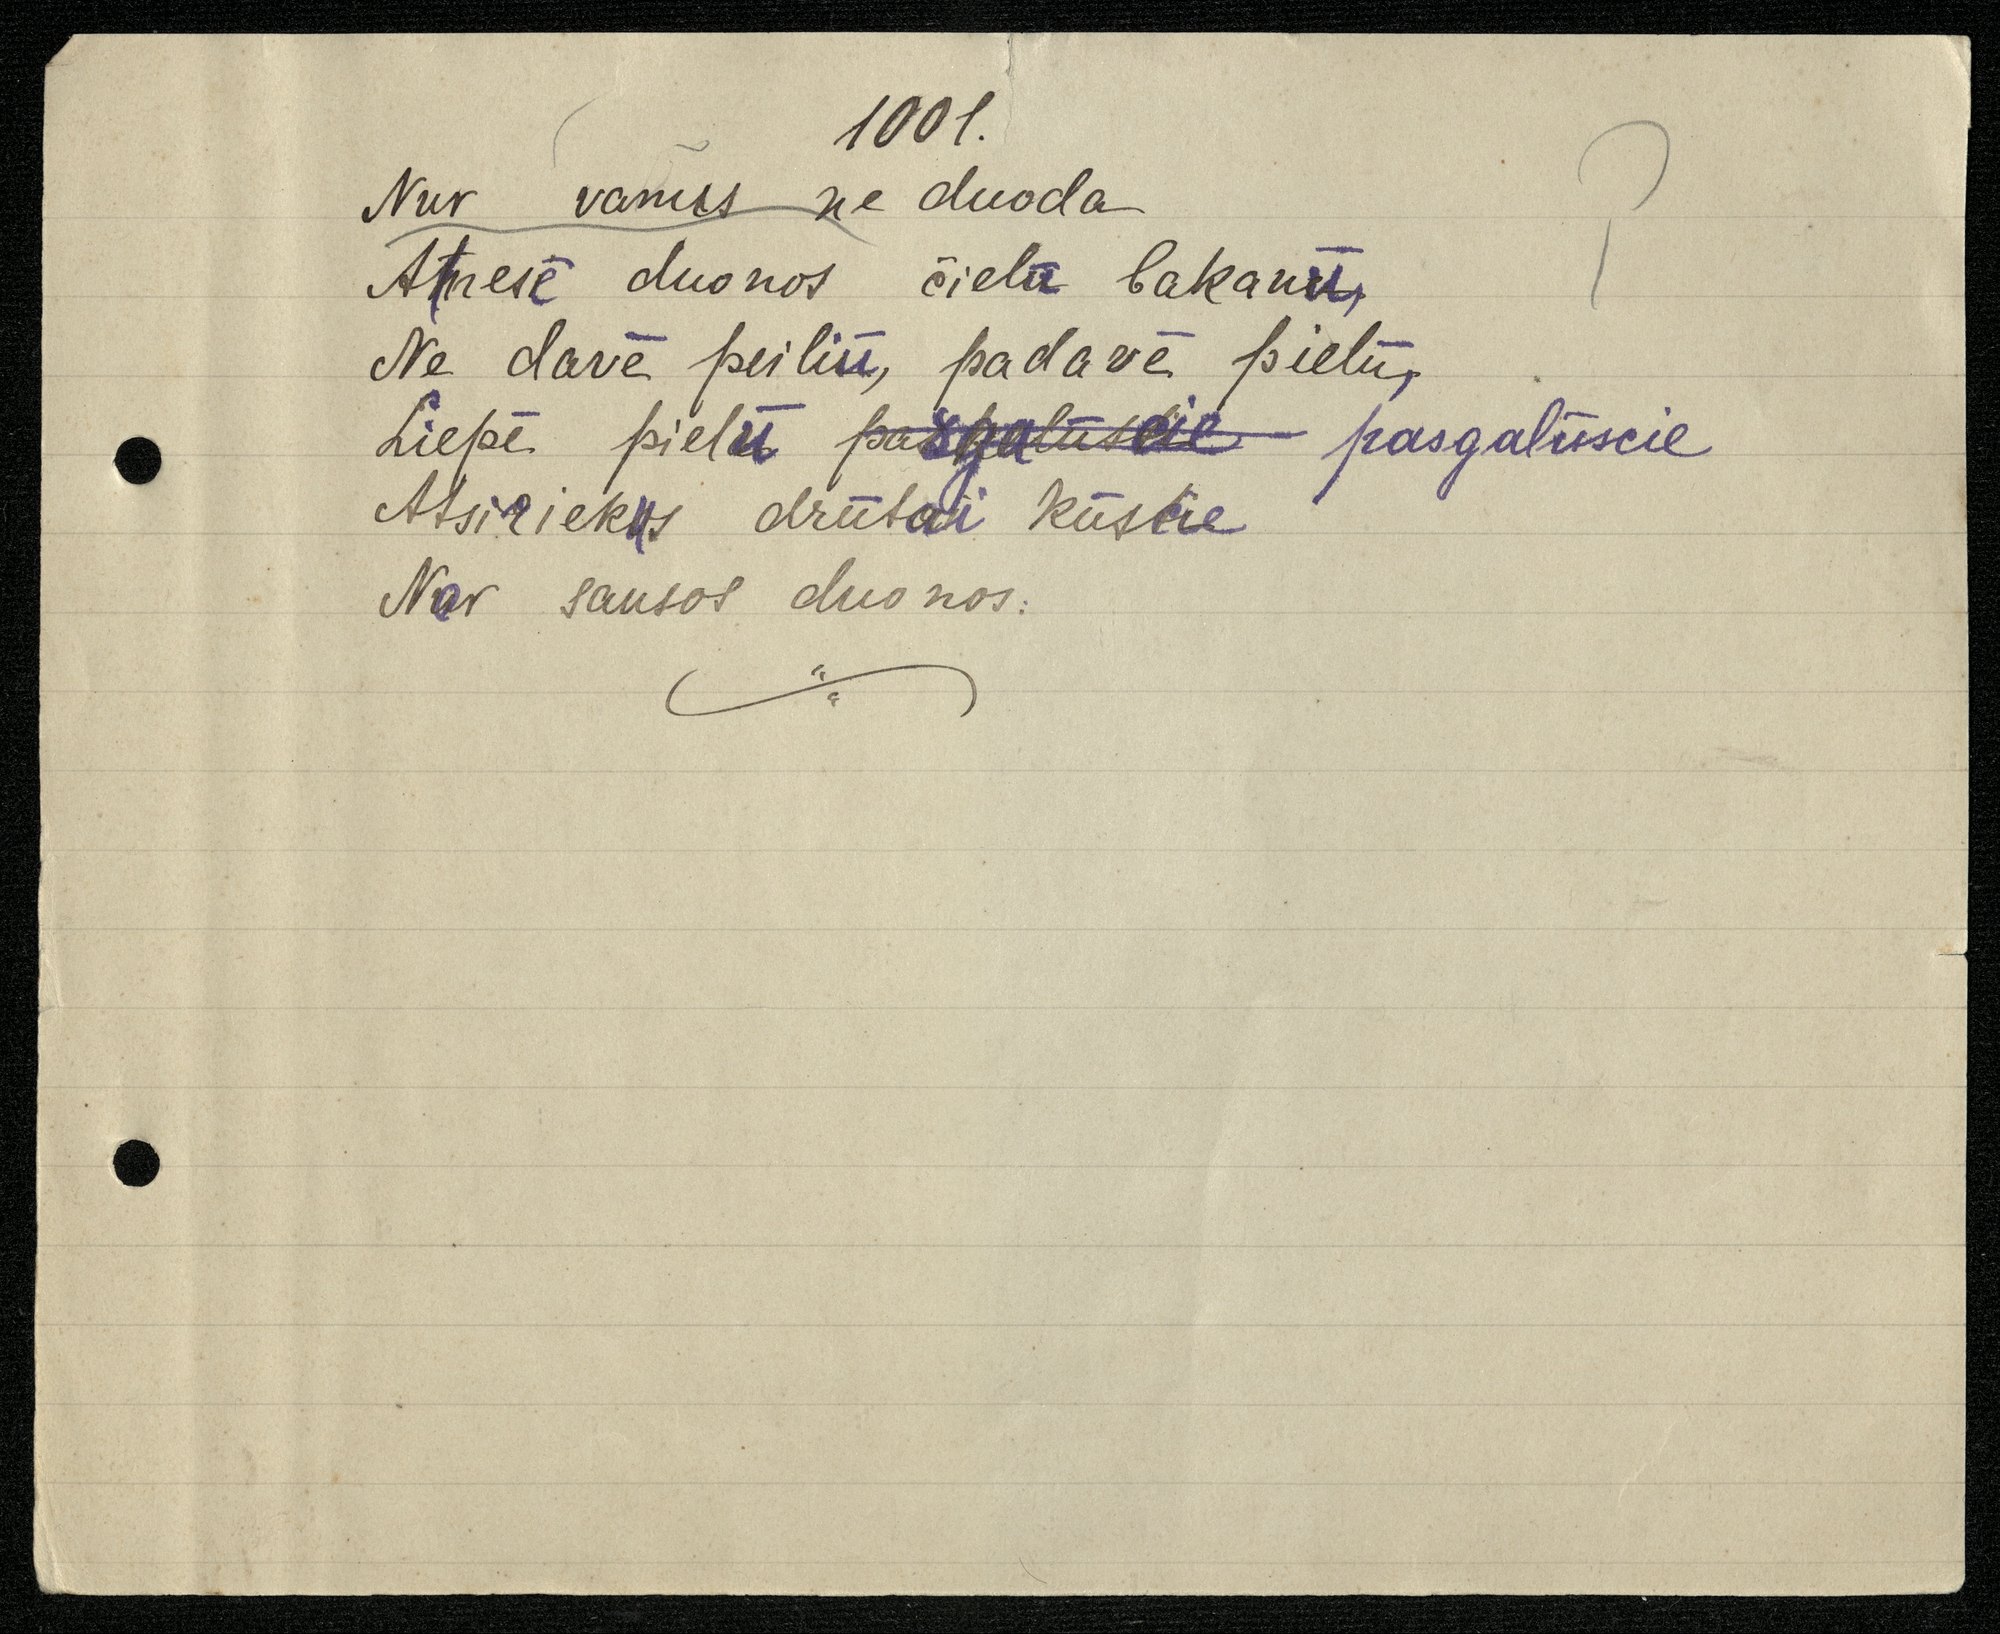 1001.
Nur vamus ne duoda
Atnesē duonos čielū bakanū,
Ne davē peiliū, padavē pielū,
Liepē pielū pasgalūscie
Atsiriekus drūtai kūscie
Nor sausos duonos.